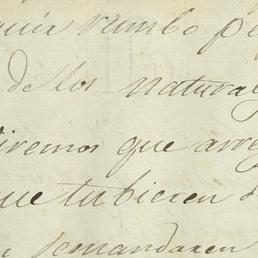 rumbo pe
de los natural
iremos que arre
que tubieren d
demandaren